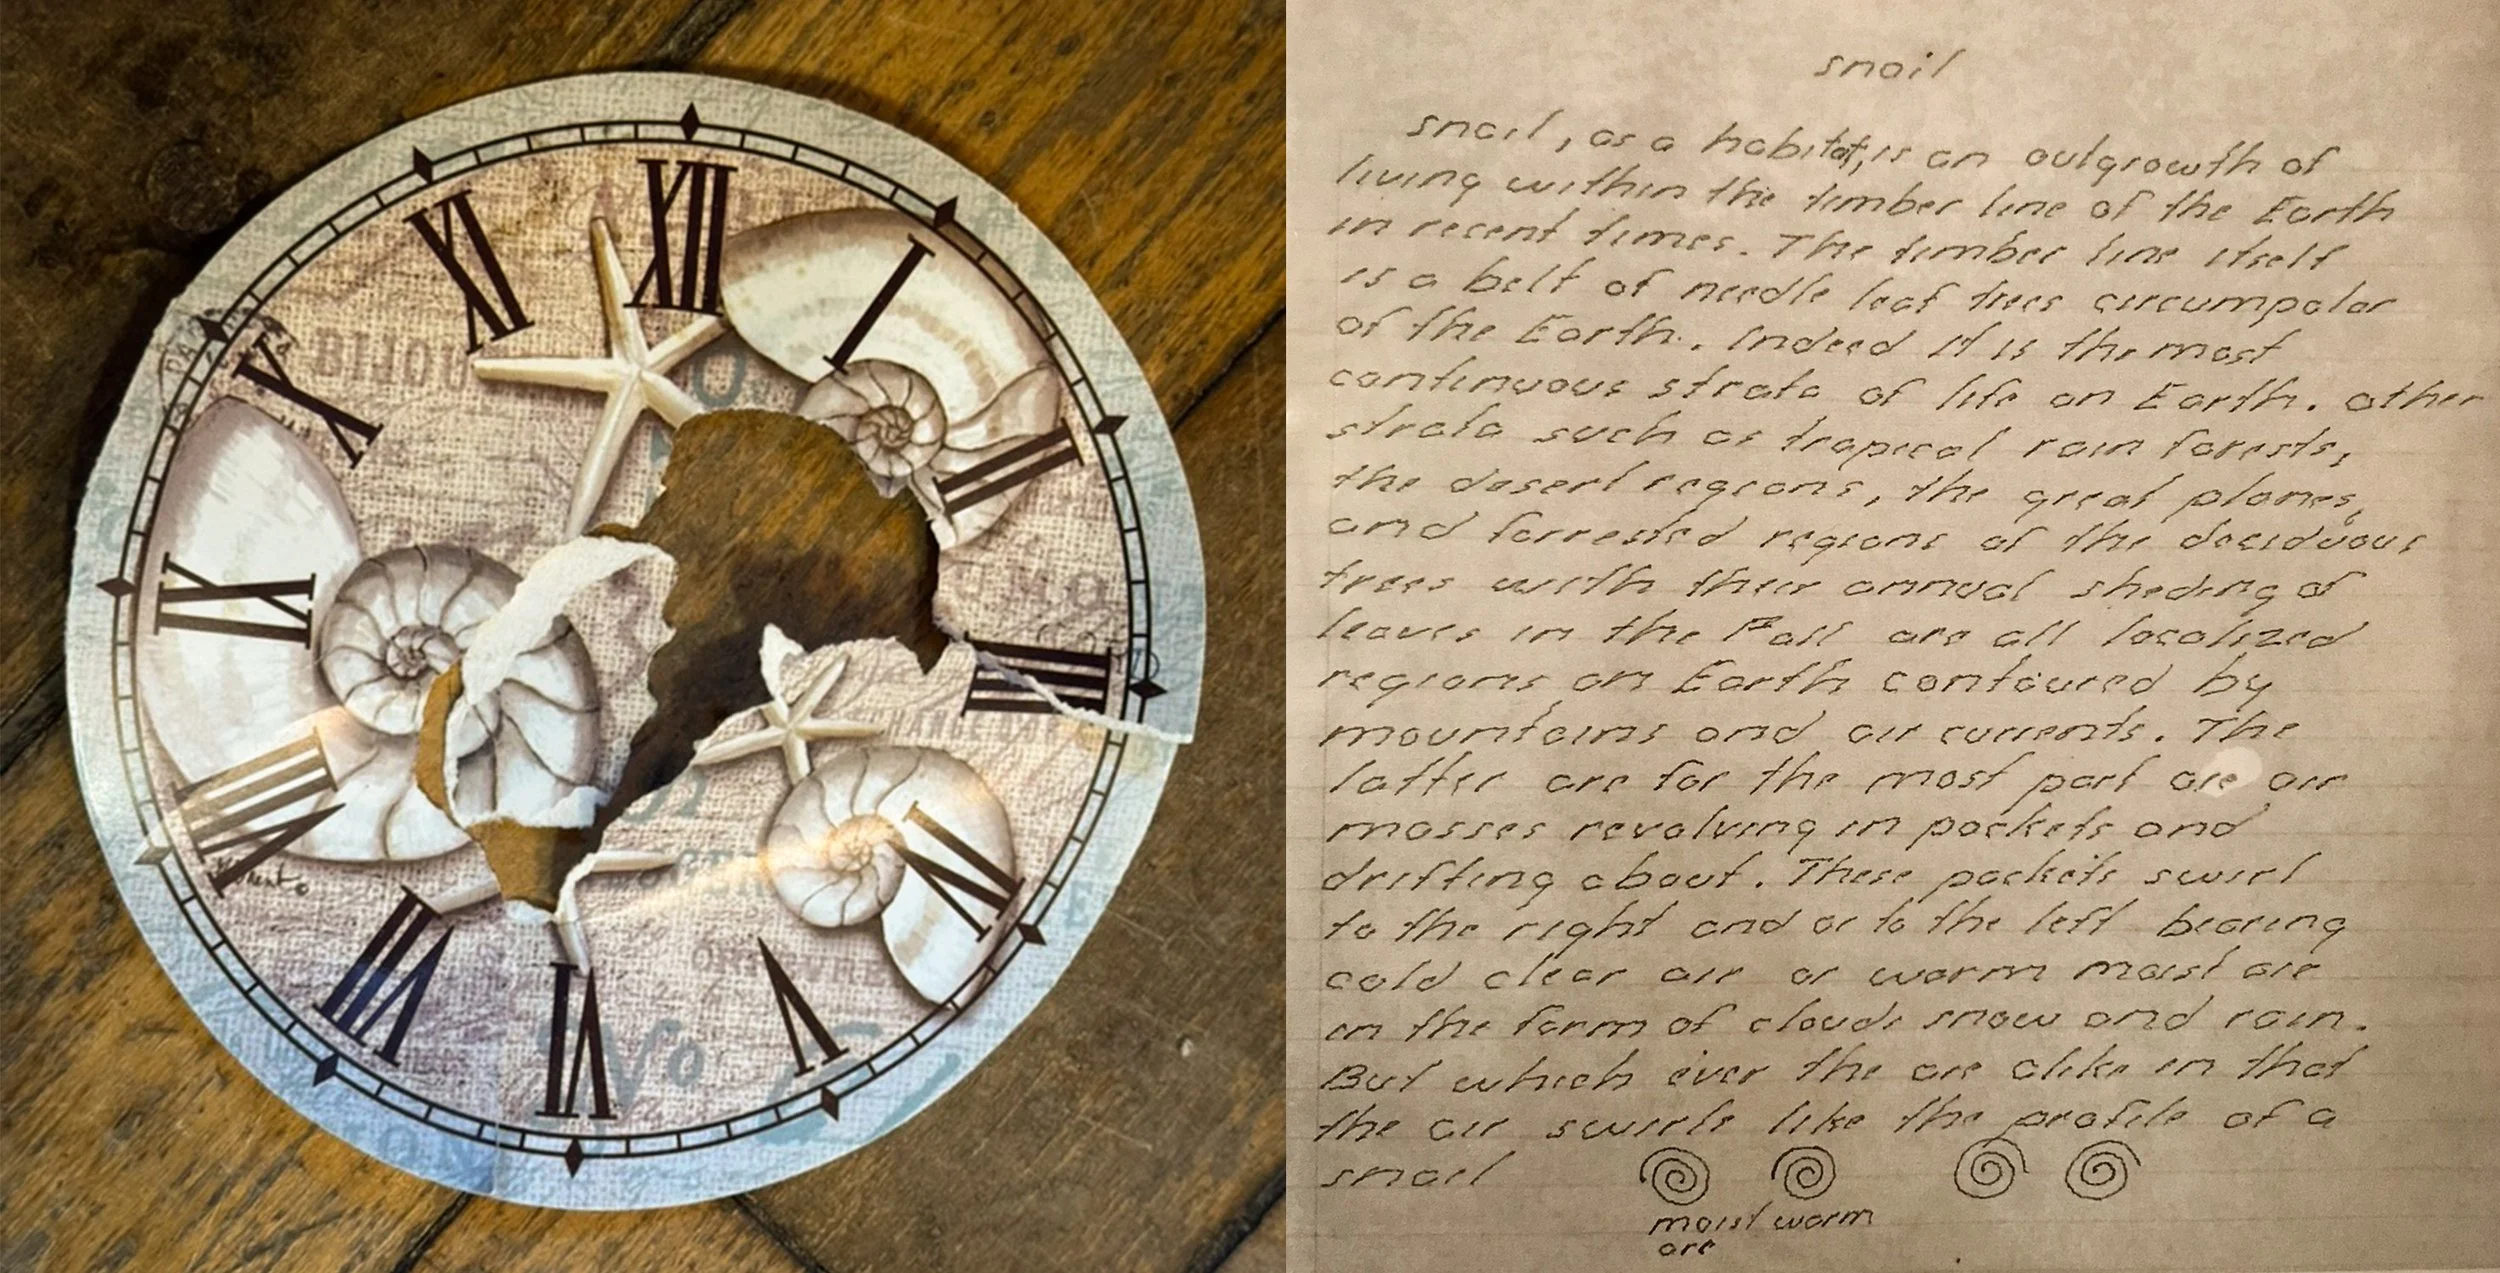 XII
I
II
III
IV
V
VI
VII
VIII
IX
X
XI
BIJOU
No
snail
snail, as a habitat, is an outgrowth of
living within the timber line of the Earth
in recent times. The timber line itself
is a belt of needle leaf trees circumpolar
of the Earth. Indeed it is the most
continuous strata of life on Earth. other
strata such as tropical rain forests,
the desert regions, the great planes,
and forrested regions of the deciduous
trees with their annual sheding of
leaves in the Fall are all localized
regions on Earth contoured by
mountains and air currents. The
latter are for the most part are air
masses revolving in pockets and
drifting about. These pockets swirl
to the right and or to the left bearing
cold clear air or warm moist air
in the form of clouds snow and rain.
But which ever the are alike in that
the air swirls like the profile of a
snail
moist warm
are